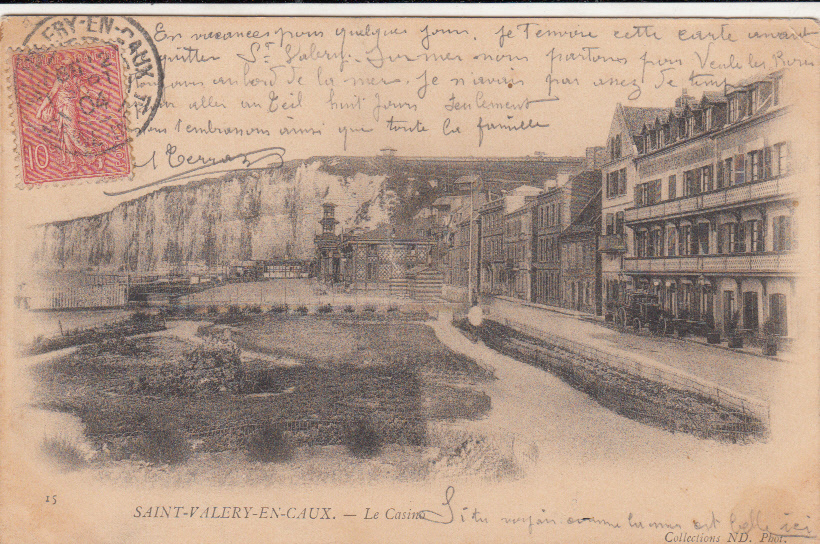 En vacances pour quelques jours. Je t'envoie cette carte avant
quitter St Valery. Sur mer nous partons pour Veule les Roses
au bord de la mer. Je n'avais pas assez de temps
aller au Teil huit jours seulement
nous t'embrassons ainsi que toute la famille
ALERY-EN-CAUX
04
10
15
SAINT-VALERY-EN-CAUX. — Le Casino
Si tu voyais comme la mer est belle ici
Collections ND. Phot.